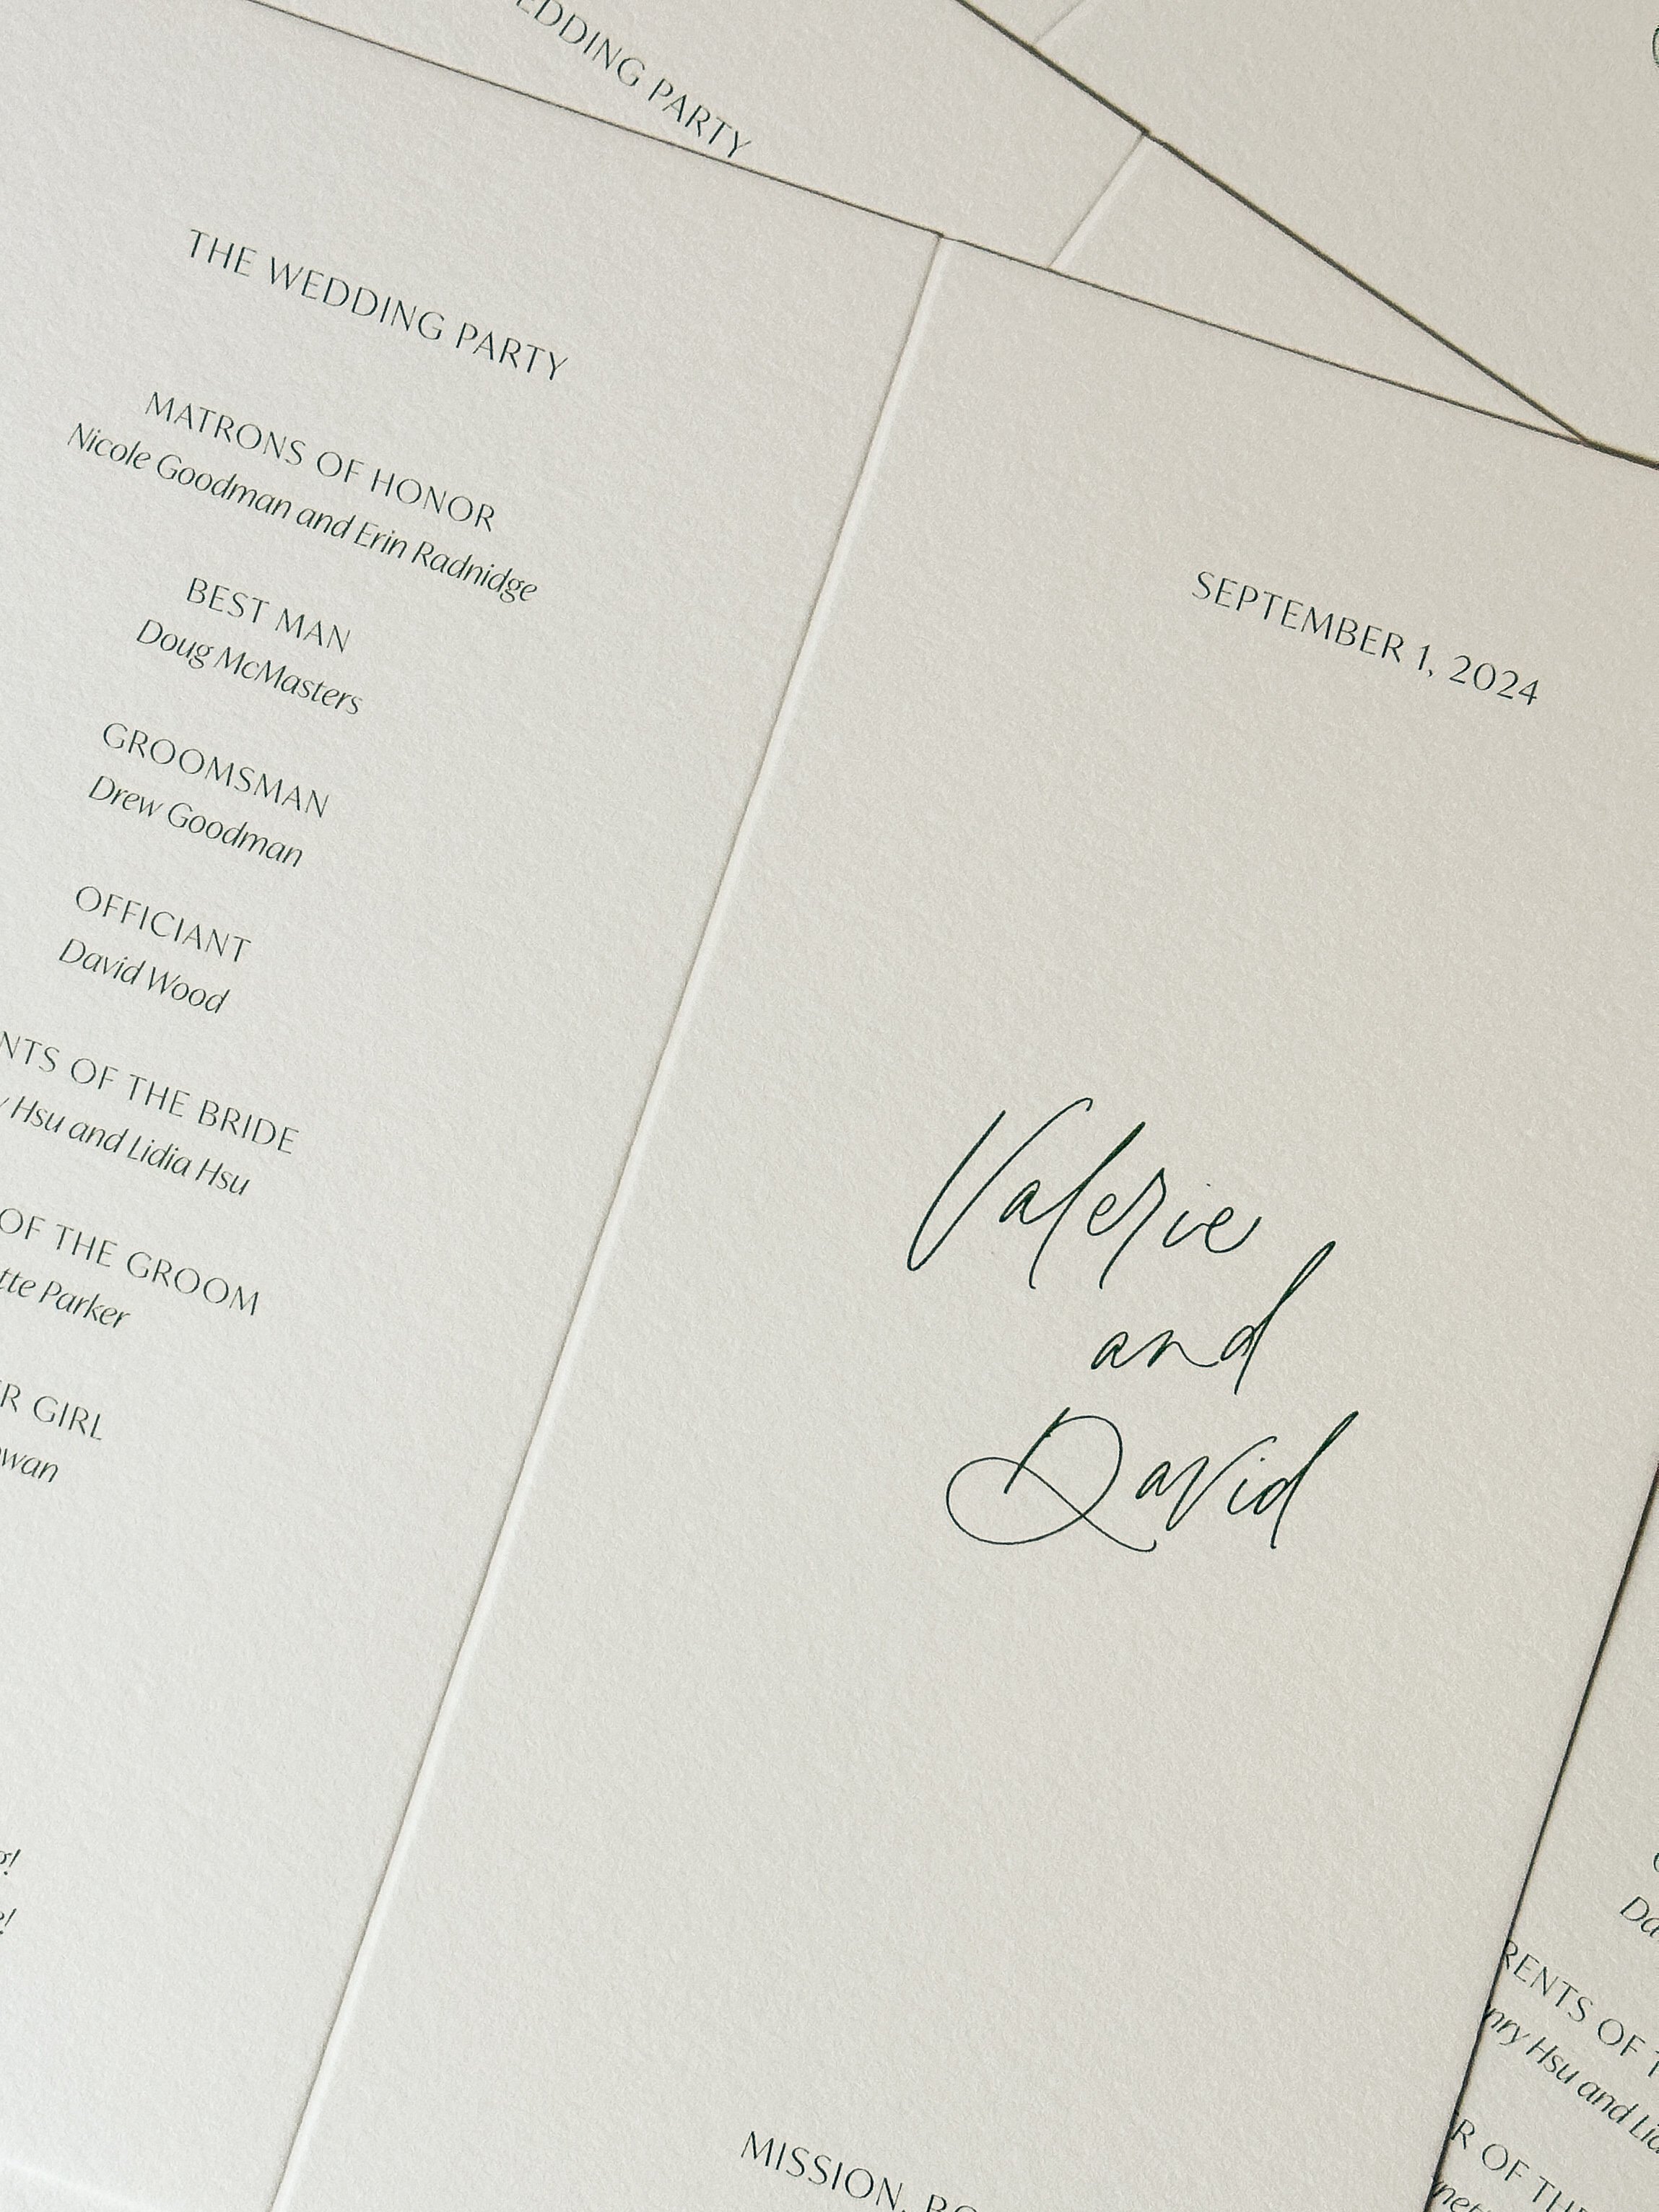 WEDDING PARTY
THE WEDDING PARTY
MATRONS OF HONOR
Nicole Goodman and Erin Radnidge
BEST MAN
Doug McMasters
GROOMSMAN
Drew Goodman
OFFICIANT
David Wood
OF THE BRIDE
Hsu and Lidia Hsu
OF THE GROOM
Parker
GIRL
SEPTEMBER 1, 2024
Valerie
and
David
MISSION,
OF
Hsu and
OF